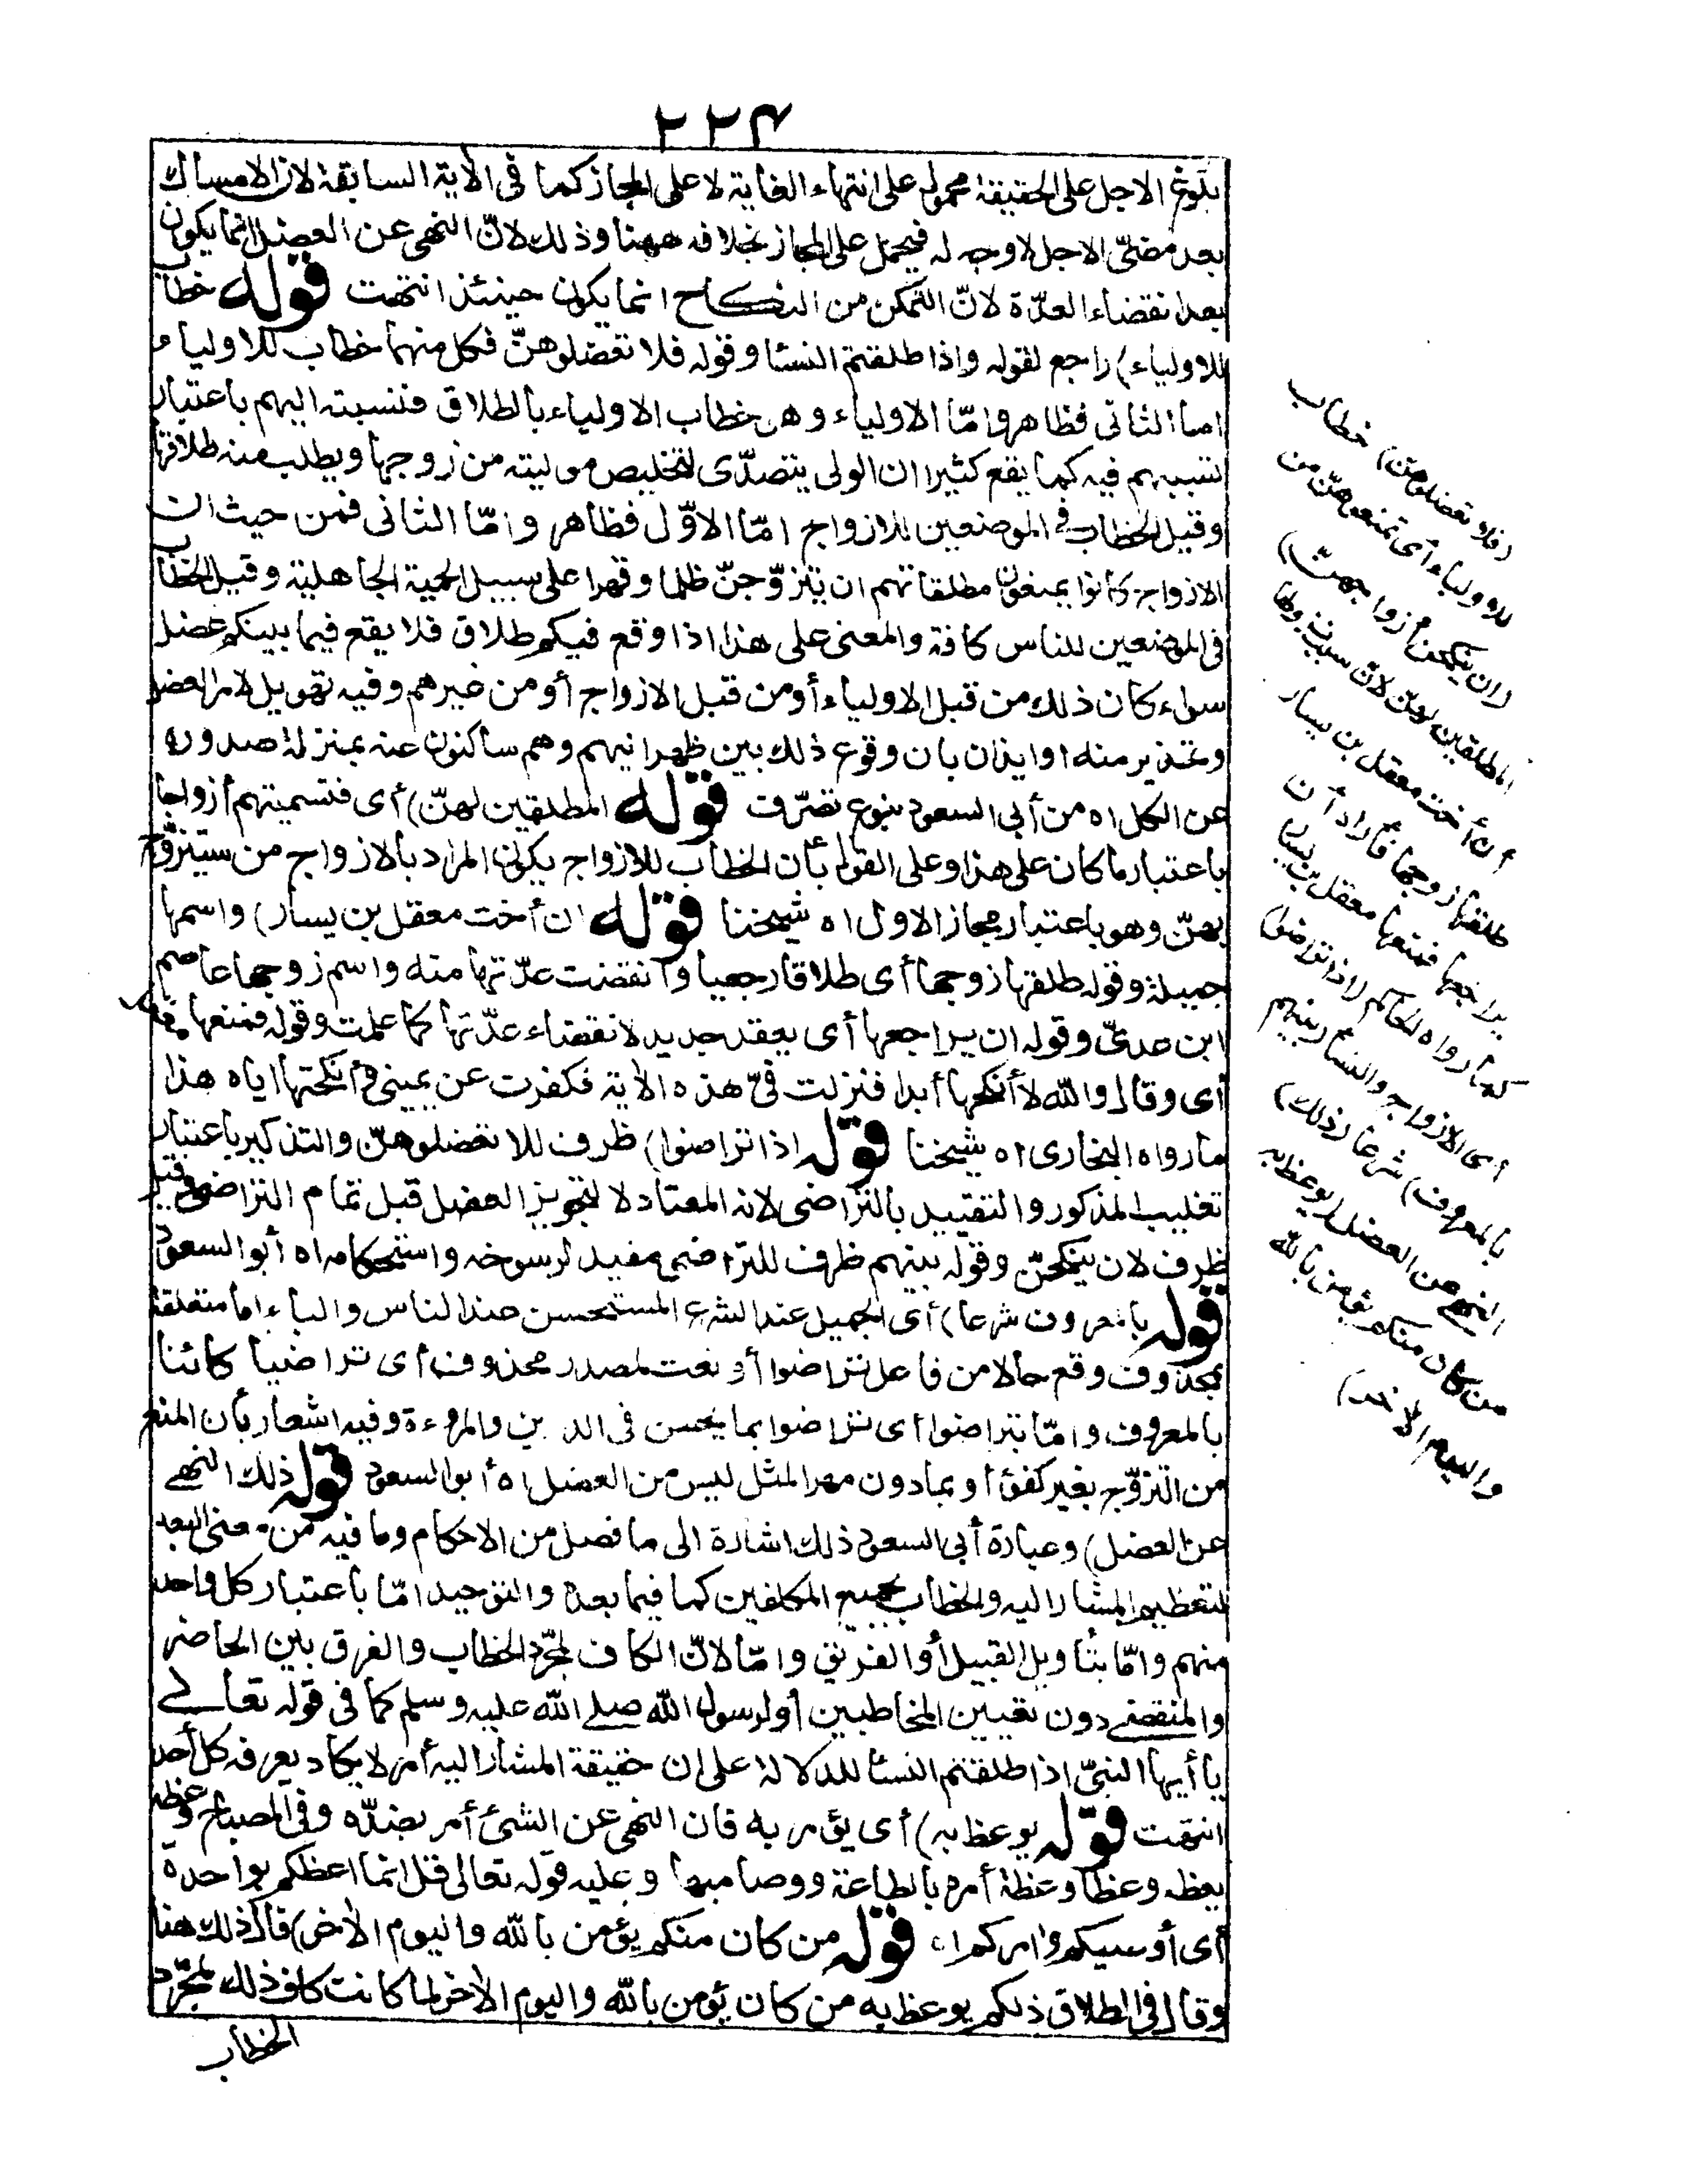 ٢٢٤
بلوغ الاجل على الحقيقة محمول على انتهاء الغاية لا على المجاز كما فى الأية السابقة لان الامساك
بعد مضىّ الاجل لا وجه له فيحمل على المجاز بخلافه ههنا وذلك لانّ النهى عن العضل انما يكون
بعد انقضاء العدّة لانّ التمكن من النكاح انما يكون حينئذ انتهت قوله خطاب
للاولياء) راجع لقوله واذا طلقتم النسٓا وقوله فلا تعضلوهنّ فكل منهما خطاب للاولياء
اما الثانى فظاهر وامّا الاولياء وهن خطاب الاولياء بالطلاق فنسبته اليهم باعتبار
تسببهم فيه كما يقع كثيرا ان الولى يتصدّى لتخليص موليته من زوجها ويطلب منه طلاقها
وقيل الخطاب فى الموضعين للازواج امّا الاوّل فظاهر وامّا الثانى فمن حيث ان
الازواج كانوا يمنعون مطلقاتهم ان يتزوّجنّ ظلما وقهرا على سبيل الحمية الجاهلية وقيل الخطاب
فى الموضعين للناس كافة والمعنى على هذا اذا وقع فيكم طلاق فلا يقع فيما بينكم عضل
سواء كان ذلك من قبل الاولياء أو من قبل الازواج أو من غيرهم وفيه تهويل لامر العضل
وتحذير منه اوايذان بان وقوع ذلك بين ظهرانيهم وهم ساكتون عنه بمنزلة صدوره
عن الكل اه من أبى السعود بنوع تصرّف قوله المطلقين لهنّ) أى فتسميتهم أزواجا
باعتبار ما كان على هذا وعلى القول بأن الخطاب للازواج يكون المراد بالازواج من سيتزوّج
بهنّ وهو باعتبار مجاز الاول اه شيخنا قوله ان أخت معقل بن يسار) واسمها
جميلة وقوله طلقها زوجها أى طلاقا رجعيا وانقضت عدّتها منه واسم زوجها عاصم
ابن عدىّ وقوله ان يراجعها أى بعقد جديد لانقضاء عدّتها كما علمت وقوله فمنعها معقل
أى وقال والله لا أنكحها أبدا فنزلت فىّ هذه الأية فكفرت عن يمينى وأنكحتها اياه هذا
ما رواه البخارى اه شيخنا قوله اذا تراضوا) ظرف للا تعضلوهنّ والتذكير باعتبار
تغليب المذكور والتقييد بالتراضى لانه المعتاد لا لتجويز العضل قبل تمام التراضى وقيل
ظرف لان ينكحنّ وقوله بينهم ظرف للتراضى مفيد لرسوخه واستحكامه اه أبو السعود
قوله بالمعروف شرعا) أى الجميل عند الشرع المستحسن عند الناس والباء اما متعلقة
بمحذوف وقع حالا من فاعل تراضوا أو نعت لمصدر محذوف أى تراضيا كائنا
بالمعروف وامّا بتراضوا أى تراضوا بما يحسن فى الدين والمروءة وفيه اشعار بأن المنع
من التزوّج بغير كفؤ أو بمادون مهر المثل ليس من العضل اه أبو السعود قوله ذلك النهے
عن العضل) وعبارة أبى السعود ذلك اشارة الى ما فصل من الاحكام وما فيه من معنى البعد
لتعظيم المشار اليه والخطاب لجميع المكلفين كما فيما بعده والتوحيد امّا باعتبار كل واحد
منهم وامّا بتأويل القبيل أو الفريق وامّا لانّ الكاف لمجرّد الخطاب والفرق بين الحاضر
والمنقضے دون تعيين المخاطبين أو لرسول الله صلے الله عليه وسلم كما فى قوله تعالے
يا أيها النبىّ اذا طلقتم النسٓا للدلالة على ان حقيقة المشار اليه أمر لا يكاد يعرفه كل أحد
انتهت قوله يوعظ به) أى يؤمر به فان النهى عن الشئ أمر بضدّه وفى المصباح وعظه
يعظه وعظا وعظة أمره بالطاعة ووصاه بها وعليه قوله تعالى قل انما اعظكم بواحدة
أى أوصيكم وامركم اه قوله من كان منكم يؤمن بالله واليوم الأخر) قال ذلك هنا
وقال فى الطلاق ذلكم يوعظ به من كان يؤمن بالله واليوم الأخر لما كانت كاف ذلك لمجرّد
الخطاب
(فلا تعضلوهن) خطاب
للاولياء أى تمنعوهنّ من
(ان ينكحن أزواجهنّ)
المطلقين لهنّ لانّ سبب نزولها
أن أخت معقل بن يسار
طلقها زوجها فأراد أن
يراجعها فمنعها معقل بن يسار
كما رواه الحاكم (اذا تراضوا)
أى الازواج والنسٓا (بينهم
بالمعروف) شرعا (ذلك)
النهى عن العضل (يوعظ به
من كان منكم يؤمن بالله
واليوم الأخر)